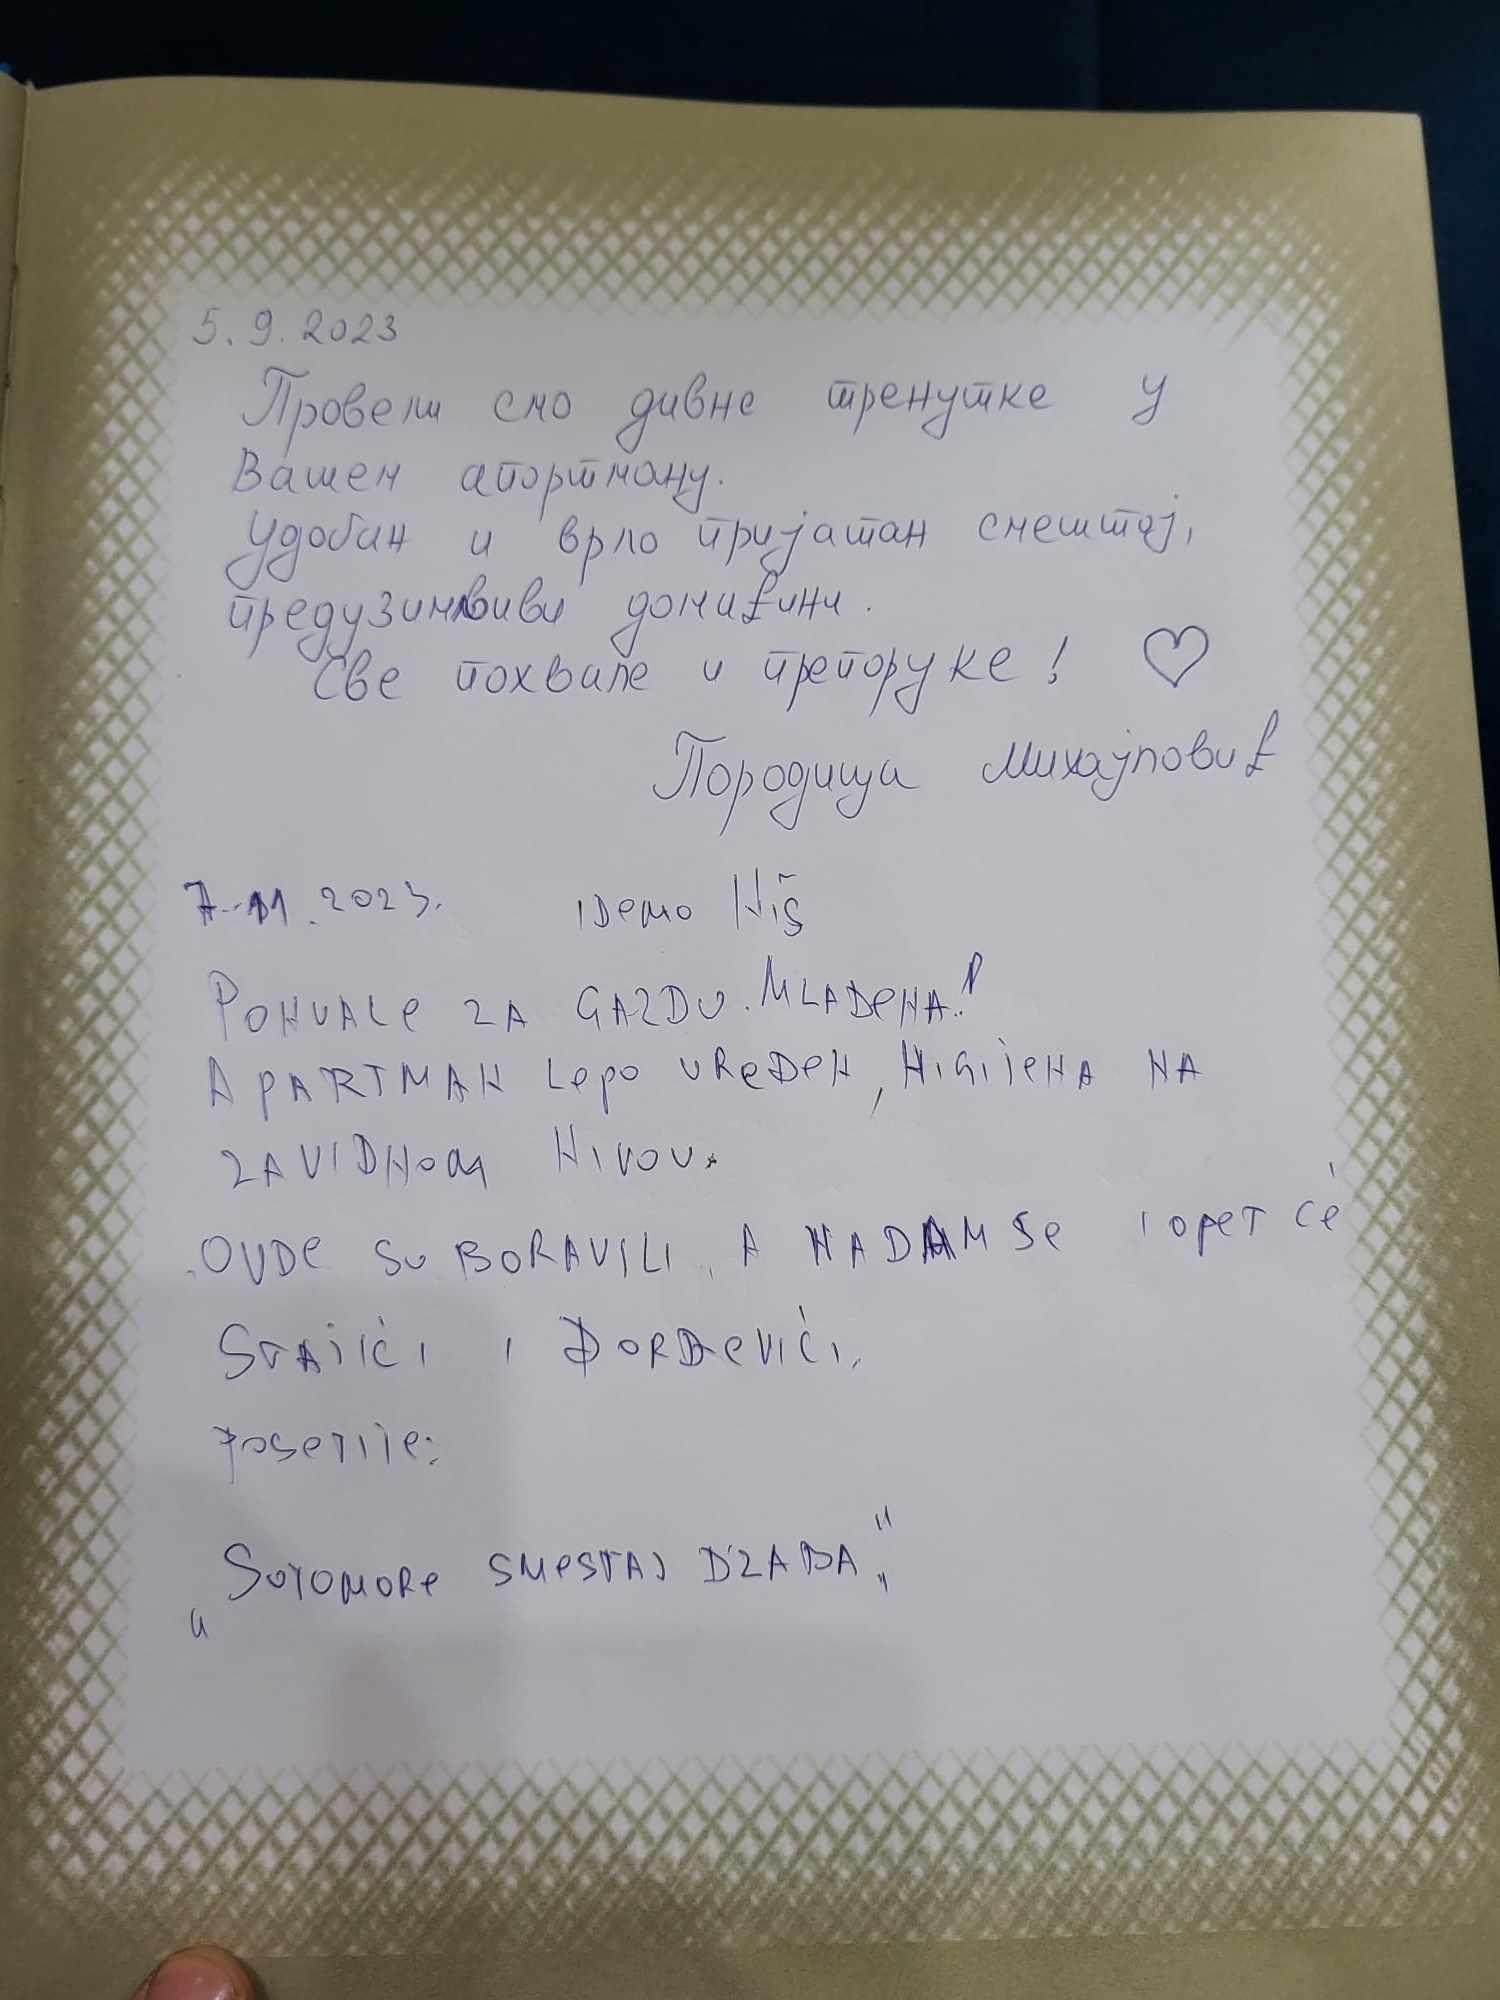 5.9.2023
Провели смо дивне тренутке у
Вашем апартману.
Удобан и врло пријатан смештај,
предузимљиви домаћини.
Све похвале и препоруке! ♡
Породица Михајловић
7.11.2023. IDEMO NIŠ
POHVALE ZA GAZDU MLADENA!
APARTMAN LEPO UREĐEN, HIGIJENA NA
ZAVIDNOM NIVOU.
OVDE SU BORAVILI, A NADAM SE I OPET ĆE
STAJIĆI I ĐORĐEVIĆI.
POSETITE:
„SUTOMORE SMEŠTAJ DŽABA"